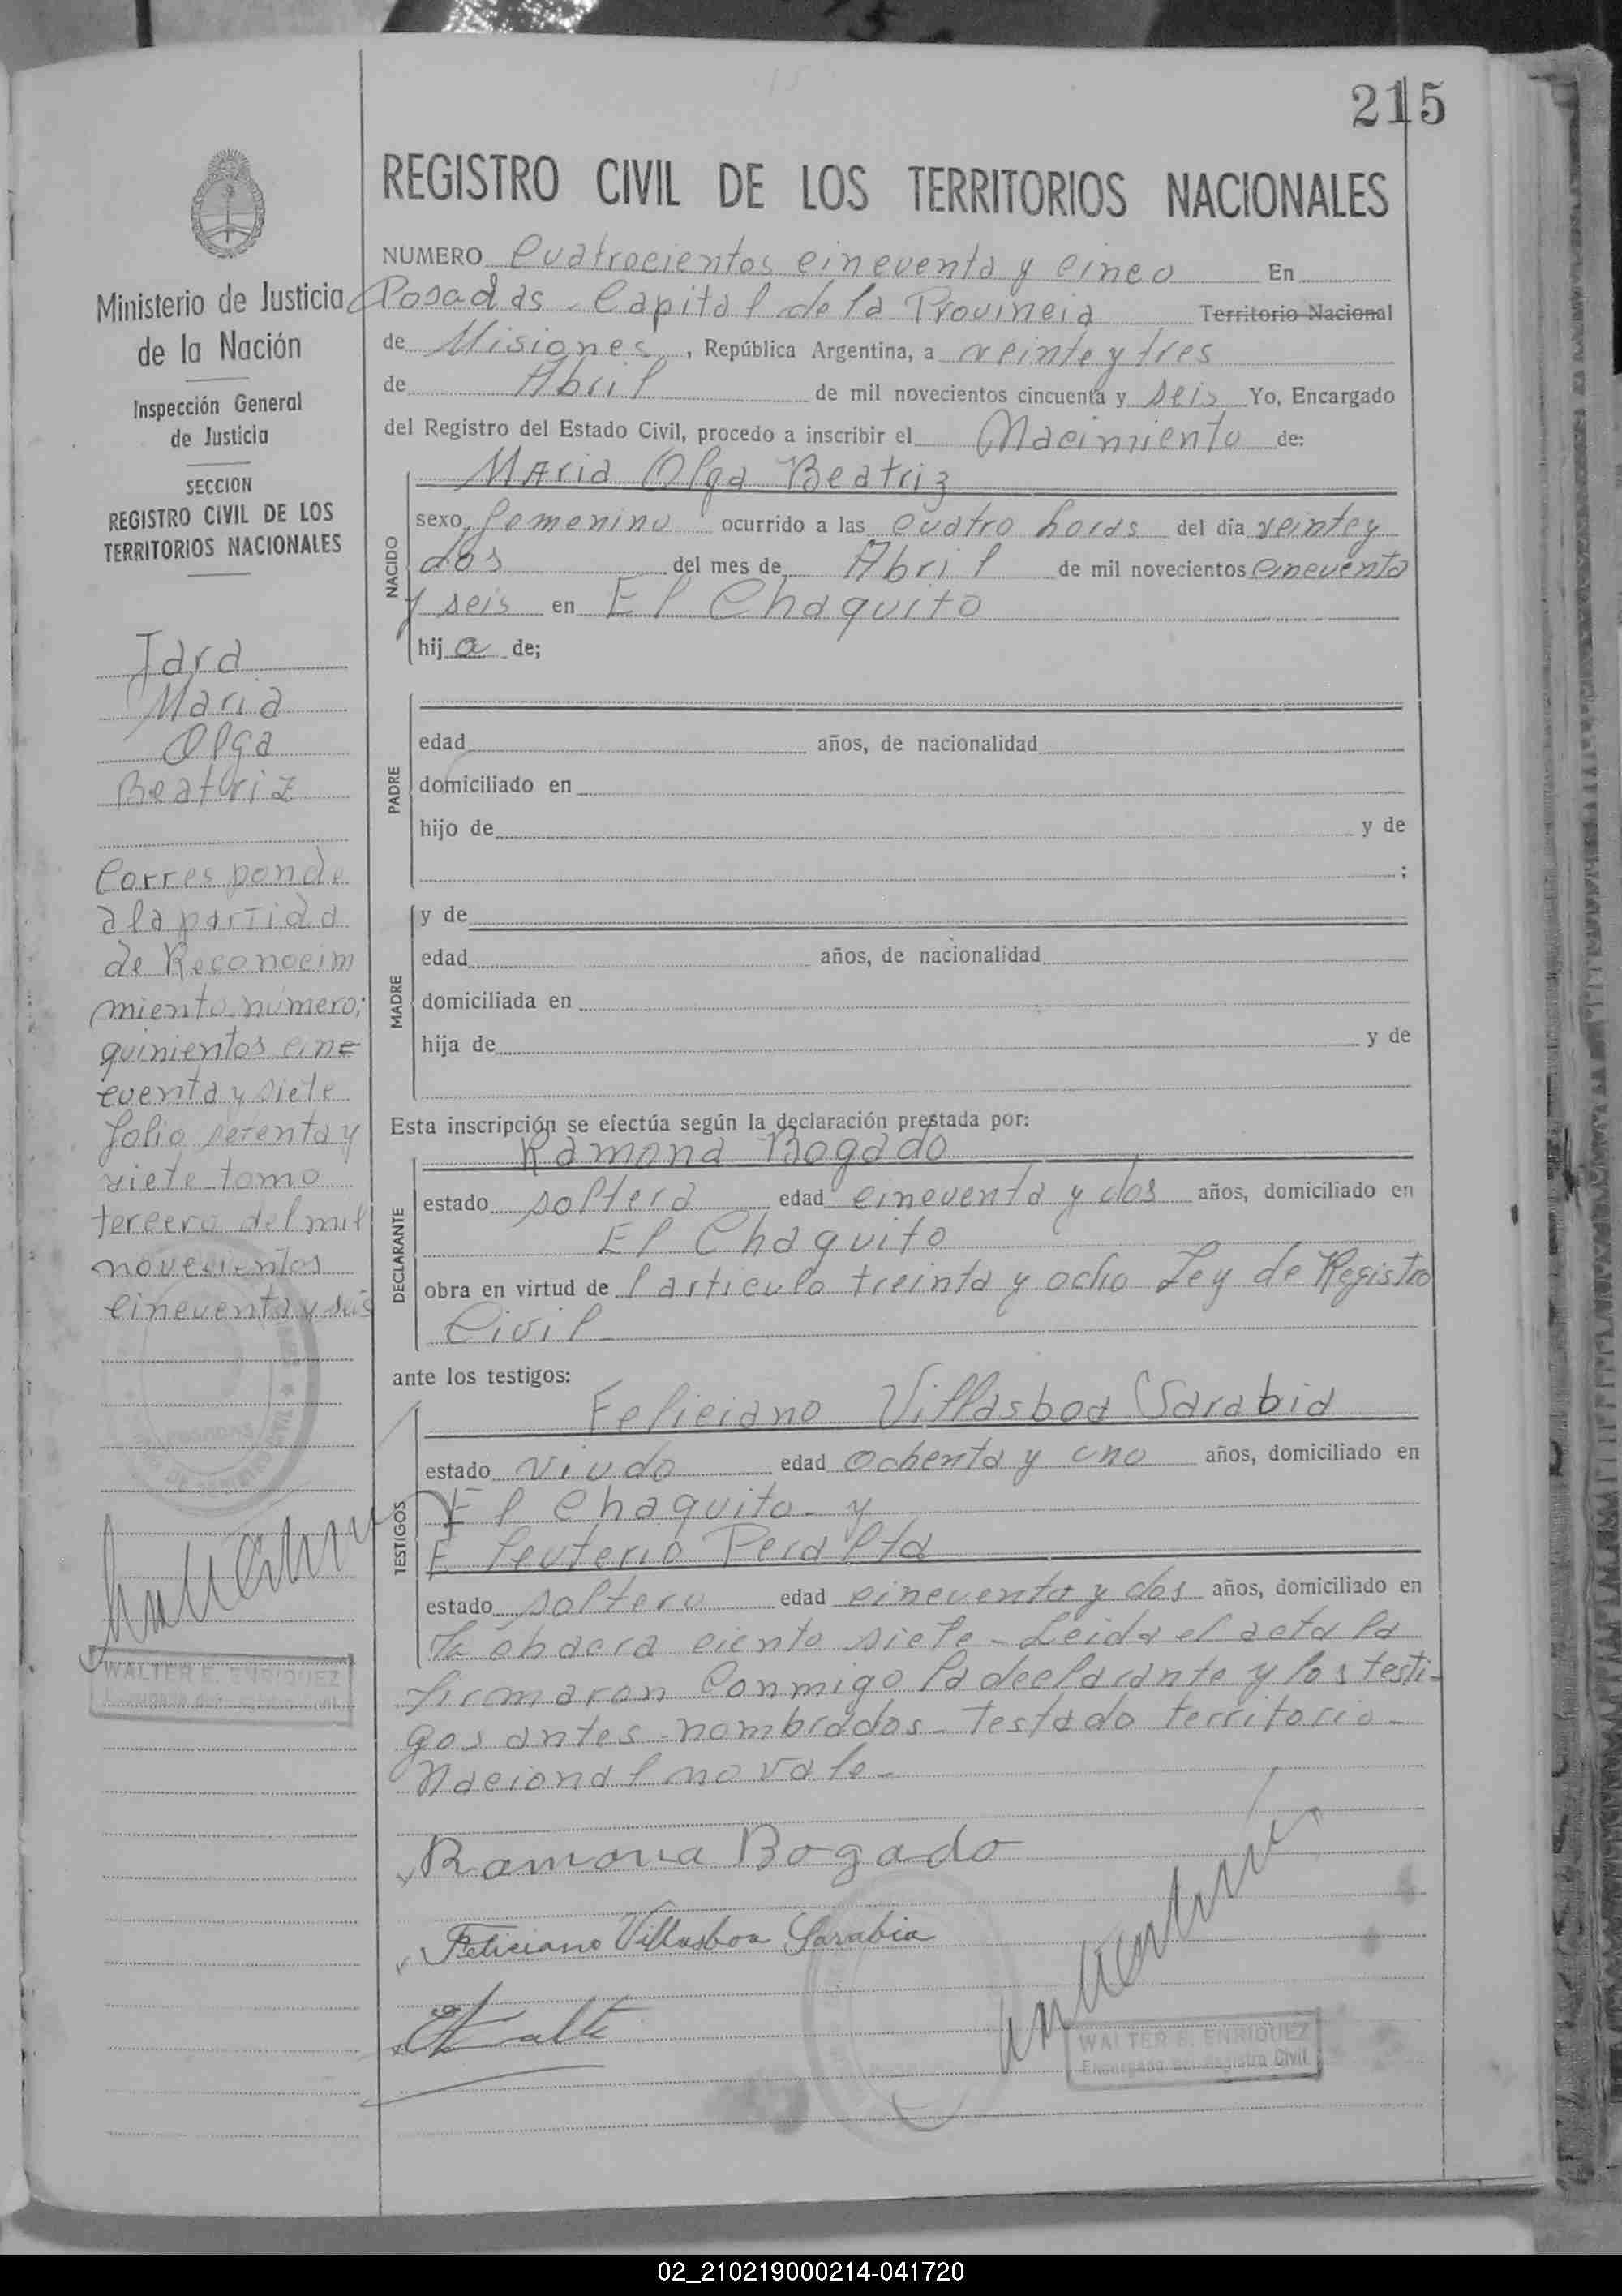 215
REGISTRO CIVIL DE LOS TERRITORIOS NACIONALES
Ministerio de Justicia
de la Nación
Inspección General
de Justicia
SECCION
REGISTRO CIVIL DE LOS
TERRITORIOS NACIONALES
Jara
Maria
Olga
Beatriz
Corresponde
a la partida
de Reconocim
miento número:
quinientos cin=
cuenta y siete
folio setenta y
siete tomo
tercero del mil
novecientos
cincuenta y seis
WALTER E. ENRIQUEZ
NUMERO Cuatrocientos cincuenta y cinco En
Posadas - Capital de la Provincia Territorio Nacional
de Misiones, República Argentina, a veinte y tres
de Abril de mil novecientos cincuenta y seis Yo, Encargado
del Registro del Estado Civil, procedo a inscribir el Nacimiento de:
NACIDO
Maria Olga Beatriz
sexo femenino ocurrido a las cuatro horas del día veinte y
dos del mes de Abril de mil novecientos cincuenta
y seis en El Chaquito
hija de;
PADRE
edad años, de nacionalidad
domiciliado en
hijo de y de
;
MADRE
y de
edad años, de nacionalidad
domiciliada en
hija de y de
Esta inscripción se efectúa según la declaración prestada por:
DECLARANTE
Ramona Bogado
estado soltera edad cincuenta y dos años, domiciliado en
El Chaquito
obra en virtud de l articulo treinta y ocho Ley de Registro
Civil
ante los testigos:
TESTIGOS
Feliciano Villasboa Sarabia
estado viudo edad ochenta y uno años, domiciliado en
El Chaquito - y
Eleuterio Peralta
estado soltero edad cincuenta y dos años, domiciliado en
la chacra ciento siete - Leida el acta la
firmaron conmigo la declarante y los testi-
gos antes nombrados - Testado territorio -
Nacional no vale -
Ramona Bogado
Feliciano Villasboa Sarabia
WALTER E. ENRIQUEZ
Encargado del Registro Civil
02_210219000214-041720